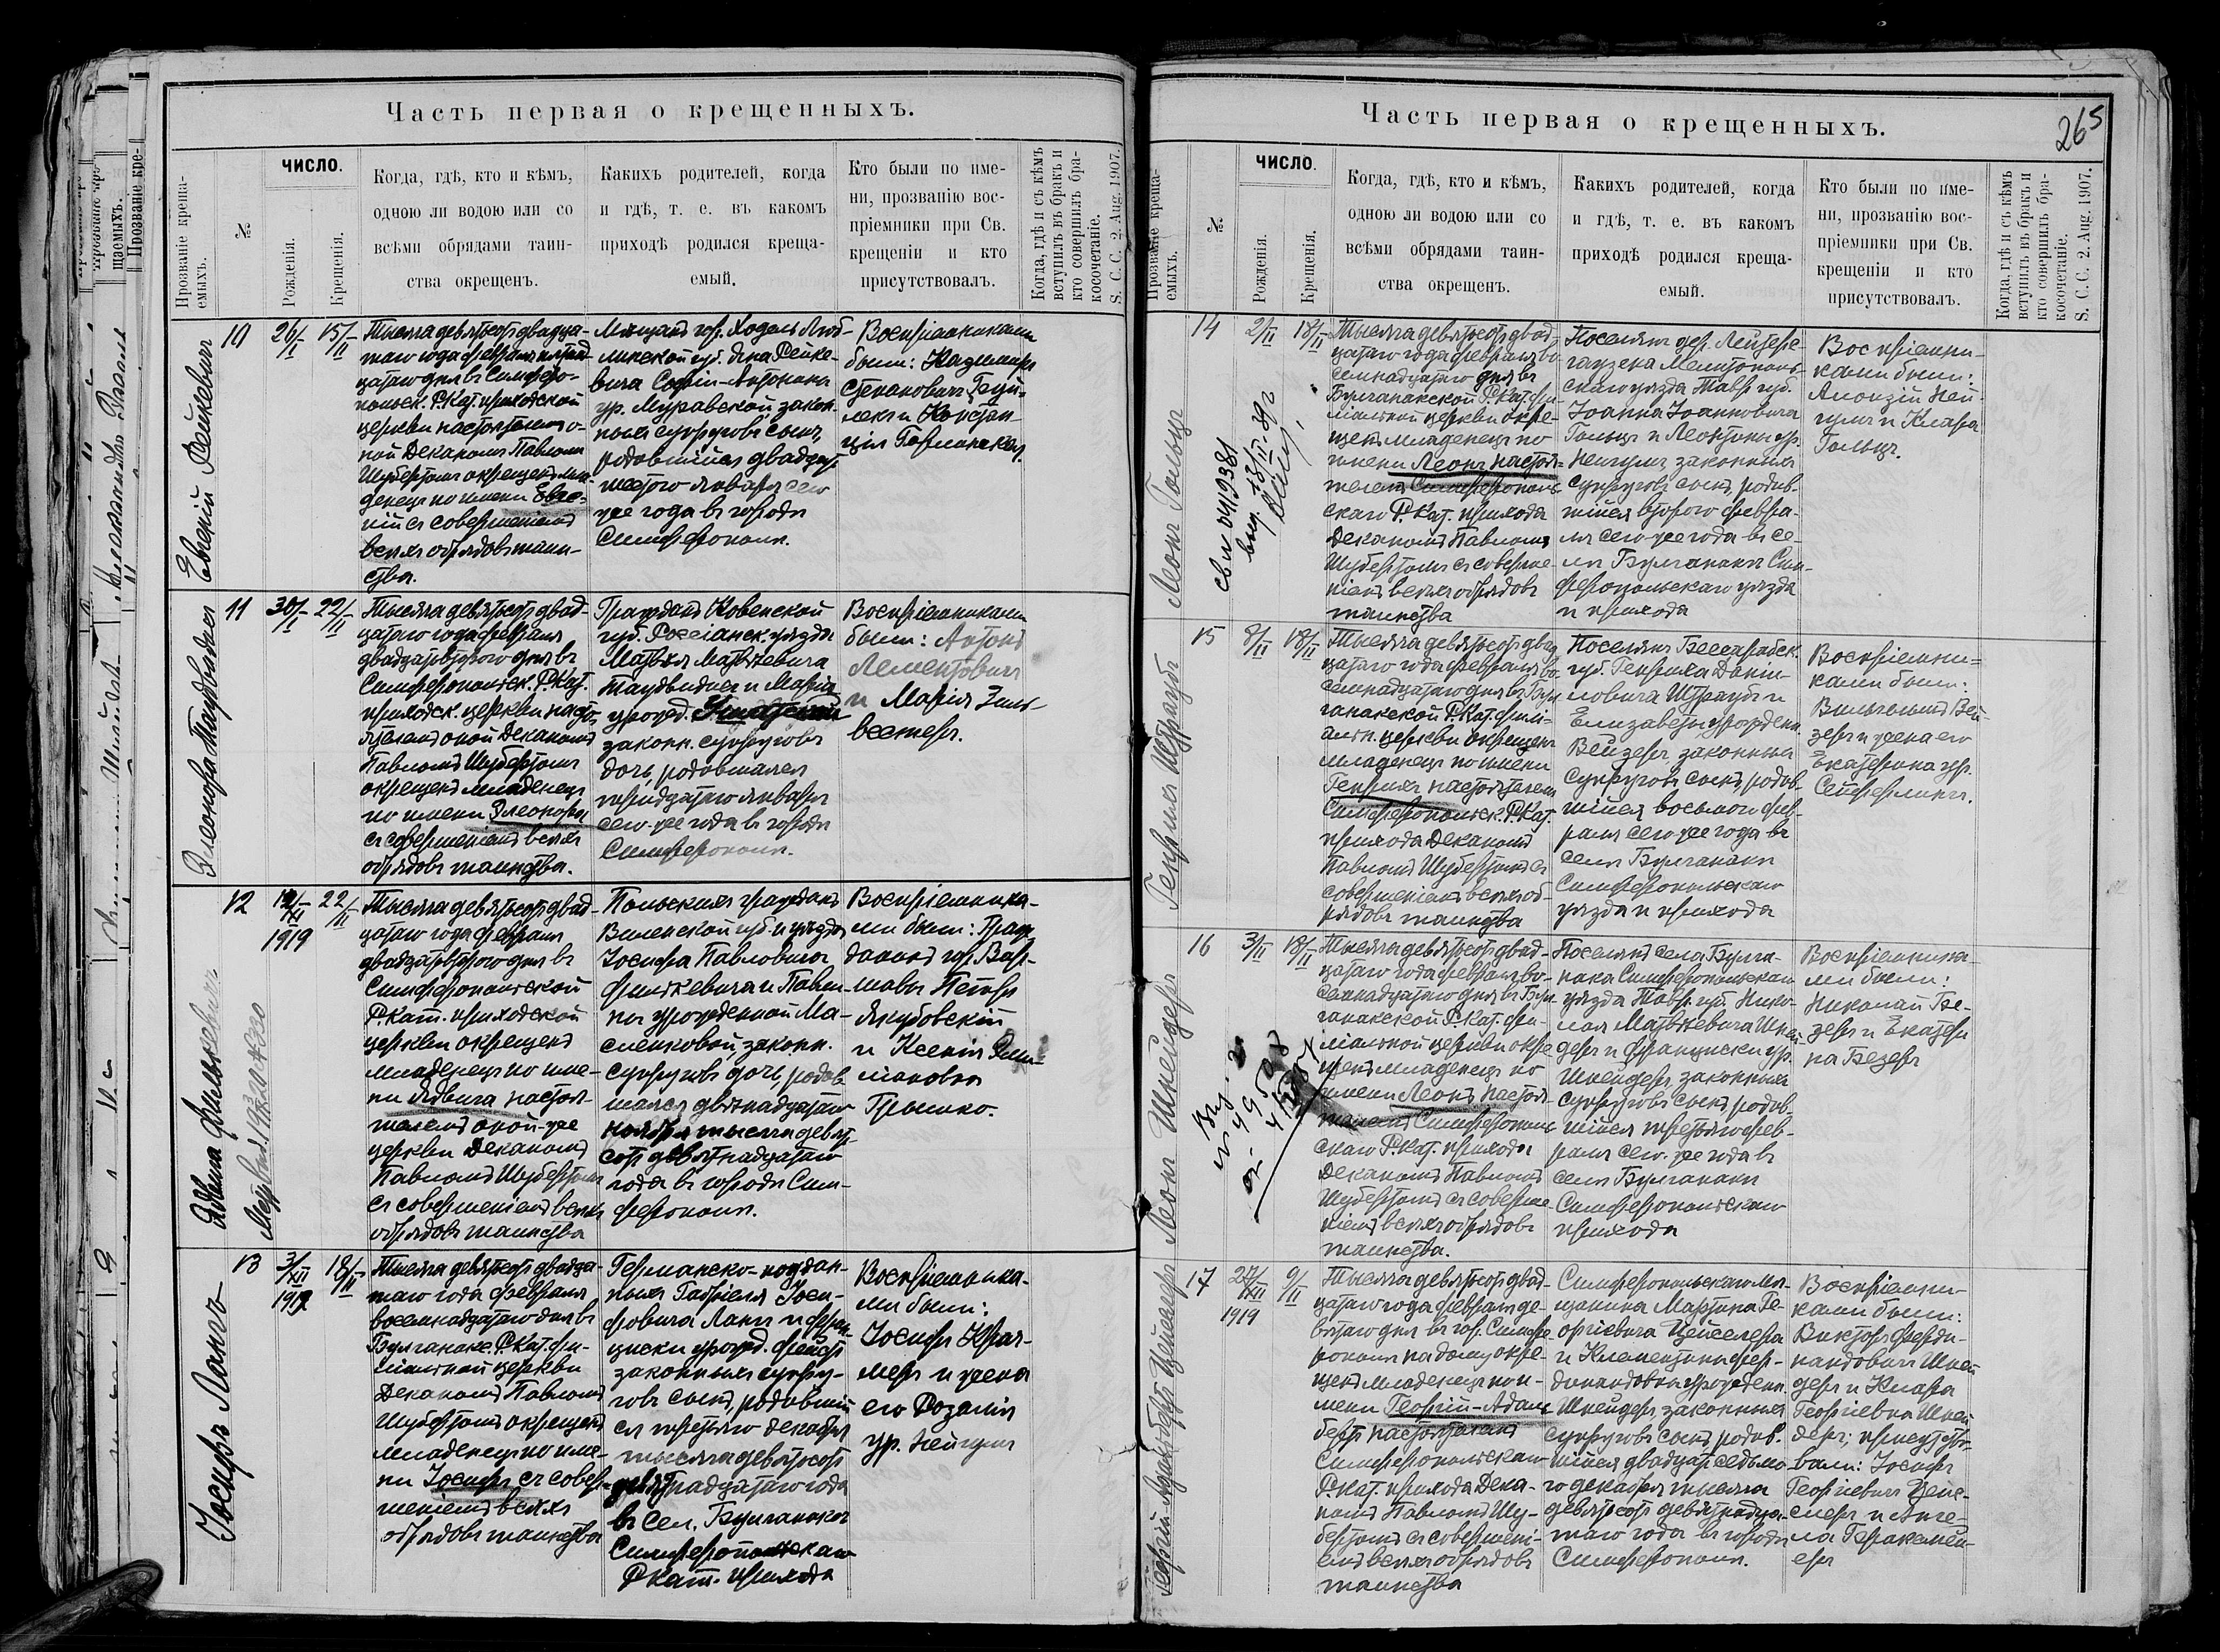 Часть первая о крещенныхъ.
Прозваніе креща-
емыхъ.
№
ЧИСЛО.
Рожденія.
Крещенія.
Когда, гдѣ, кто и кѣмъ,
одною ли водою или со
всѣми обрядами таин-
ства окрещенъ.
Какихъ родителей, когда
и гдѣ, т. е. въ какомъ
приходѣ родился креща-
емый.
Кто были по име-
ни, прозванію вос-
пріемники при Св.
крещеніи и кто
присутствовалъ.
Когда, гдѣ и съ кѣмъ
вступилъ въ бракъ и
кто совершилъ бра-
косочетаніе.
S. C. C. 2. Aug. 1907.
Евгеній Рейкевичъ
10
26/I
15/II
Тысяча девятьсотъ двадца-
таго года февраля пятнад-
цатаго дня въ Симферо-
польск. Р.Кат. приходской
церкви настоятелемъ о-
ной Деканомъ Павломъ
Шубертомъ окрещенъ мла-
денецъ по имени Евге-
ній съ совершеніемъ
всѣхъ обрядовъ таин-
ства.
Мѣщанъ гор. Ходель Люб-
линской губ. Яна Рейке-
вича Софіи-Антонины
ур. Муравской закон-
ныхъ супруговъ сынъ,
родившійся двадцать
шестого января сего
же года въ городѣ
Симферополѣ.
Воспріемниками
были: Казимиръ
Степановичъ
и Констан-
ція
Элеонора Таудвидасъ
11
30/I
22/II
Тысяча девятьсотъ двад-
цатаго года февраля
двадцать второго дня въ
Симферопольск. Р.Кат.
приходск. церкви насто-
ятелемъ оной Деканомъ
Павломъ Шубертомъ
окрещенъ младенецъ
по имени Элеонора
съ совершеніемъ всѣхъ
обрядовъ таинства.
Гражданъ Ковенской
губ. Россіенск. уѣзда
Матвѣя Матвѣевича
Таудвидаса и Маріи
урожд.
законн. супруговъ
дочь, родившаяся
тридцатаго января
сего же года въ городѣ
Симферополѣ.
Воспріемниками
были: Антонъ
Лементовичъ
и Марія Зиль-
вестеръ.
Ядвига Филькевичъ
12
12/XI
1919
22/II
Тысяча девятьсотъ двад-
цатаго года февраля
двадцать второго дня въ
Симферопольской
Р.Кат. приходской
церкви окрещенъ
младенецъ по име-
ни Ядвига настоя-
телемъ оной-же
церкви Деканомъ
Павломъ Шубертомъ
съ совершеніемъ всѣхъ
обрядовъ таинства
Польскихъ гражданъ
Виленской губ. и уѣзда
Іосифа Павловича
Филькевича и Павли-
ны урожденной Ма-
сленковой законн.
супруговъ дочь, родив-
шаяся двѣнадцатаго
ноября тысяча девять-
сотъ девятнадцатаго
года въ городѣ Сим-
ферополѣ.
Воспріемника-
ми были: Граж-
данинъ гор. Вар-
шавы Петръ
Якубовскій
и Ксенія
Гришко.
Іосифъ Лангъ
13
3/XII
1919
18/II
Тысяча девятьсотъ двадца-
таго года февраля
восемнадцатаго дня въ
Булганакс. Р.Кат. фи-
ліальной церкви
Деканомъ Павломъ
Шубертомъ окрещенъ
младенецъ по име-
ни Іосифъ съ совер-
шеніемъ всѣхъ
обрядовъ таинства
Германско-поддан-
ныхъ Гавріеля Іоси-
фовича Лангъ и Фран-
циски урожд. Фейстъ
законныхъ супру-
говъ сынъ, родившій-
ся третьяго декабря
тысяча девятьсотъ
девятнадцатаго года
въ сел. Булганакѣ
Симферопольскаго
Ркат. прихода
Воспріемника-
ми были:
Іосифъ Кра-
меръ и жена
его Розалія
ур. Нейгумъ
Часть первая о крещенныхъ.
265
Прозваніе креща-
емыхъ.
№
ЧИСЛО.
Рожденія.
Крещенія.
Когда, гдѣ, кто и кѣмъ,
одною ли водою или со
всѣми обрядами таин-
ства окрещенъ.
Какихъ родителей, когда
и гдѣ, т. е. въ какомъ
приходѣ родился креща-
емый.
Кто были по име-
ни, прозванію вос-
пріемники при Св.
крещеніи и кто
присутствовалъ.
Когда, гдѣ и съ кѣмъ
вступилъ въ бракъ и
кто совершилъ бра-
косочетаніе.
S. C. C. 2. Aug. 1907.
Леонъ Гольцъ
14
2/II
18/II
Тысяча девятьсотъ двад-
цатаго года февраля во-
семнадцатаго дня въ
Булганакской Р.Кат. фи-
ліальной церкви окре-
щенъ младенецъ по
имени Леонъ настоя-
телемъ Симферополь-
скаго Р.Кат. прихода
Деканомъ Павломъ
Шубертомъ съ соверше-
ніемъ всѣхъ обрядовъ
таинства
Поселянъ дер.
Мелитополь-
скаго уѣзда Тавр. губ.
Іоанна Іоанновича
Гольцъ и Леонтины ур.
Нейгумъ законныхъ
супруговъ сынъ, родив-
шійся второго февра-
ля сего же года въ се-
лѣ Булганакъ Сим-
феропольскаго уѣзда
и прихода
Воспріемни-
ками были:
Алоизій Ней-
гумъ и Клара
Гольцъ.
Генрихъ Штраубъ
15
8/II
18/II
Тысяча девятьсотъ двад-
цатаго года февраля во-
семнадцатаго дня въ Бул-
ганакской Р.Кат. фили-
альн. церкви окрещенъ
младенецъ по имени
Генрихъ настоятелемъ
Симферопольск. Р.Кат.
прихода Деканомъ
Павломъ Шубертомъ съ
совершеніемъ всѣхъ об-
рядовъ таинства
Поселянъ Бессарабск.
губ. Генриха Дані-
ловича Штраубъ и
Елизаветы урожденн.
Вейзеръ законныхъ
супруговъ сынъ, родив-
шійся восьмого фев-
раля сего же года въ
селѣ Булганакъ
Симферопольскаго
уѣзда и прихода
Воспріемни-
ками были:
Вильгельмъ Вей-
зеръ и жена его
Екатерина ур.
Сейферлингъ.
Леонъ Шнейдеръ
16
3/II
18/II
Тысяча девятьсотъ двад-
цатаго года февраля во-
семнадцатаго дня въ Бул-
ганакской Р.Кат. фи-
ліальной церкви окре-
щенъ младенецъ по
имени Леонъ настоя-
телемъ Симферополь-
скаго Р.Кат. прихода
Деканомъ Павломъ
Шубертомъ съ соверше-
ніемъ всѣхъ обрядовъ
таинства.
Поселянъ села Булга-
нака Симферопольскаго
уѣзда Тавр. губ. Нико-
лая Матвѣевича Шней-
деръ и Франциски ур.
Шнейдеръ, законныхъ
супруговъ сынъ, родив-
шійся третьяго фев-
раля сего-же года въ
селѣ Булганакъ
Симферопольскаго
прихода
Воспріемника-
ми были:
Николай Бе-
зеръ и Екатери-
на Безеръ
Георгій-Адальбертъ Цейслеръ
17
27/XII
1919
9/II
Тысяча девятьсотъ двад-
цатаго года февраля де-
вятаго дня въ гор. Симфе-
рополѣ на дому окре-
щенъ младенецъ по и-
мени Георгій-Адаль-
бертъ настоятелемъ
Симферопольскаго
Р.Кат. прихода Дека-
номъ Павломъ Шу-
бертомъ съ совершені-
емъ всѣхъ обрядовъ
таинства
Симферопольскаго мѣ-
щанина Мартина Ге-
оргіевича Цейслера
и Клементины Фер-
динандовны урожденн.
Шнейдеръ законныхъ
супруговъ сынъ, родив-
шійся двадцать седьмо-
го декабря тысяча
девятьсотъ девятнадца-
таго года въ городѣ
Симферополѣ.
Воспріемни-
ками были:
Викторъ Ферди-
нандовичъ Шней-
деръ и Клара
Георгіевна Шней-
деръ; присутство-
вали: Іосифъ
Георгіевичъ Цей-
слеръ и Анге-
ла